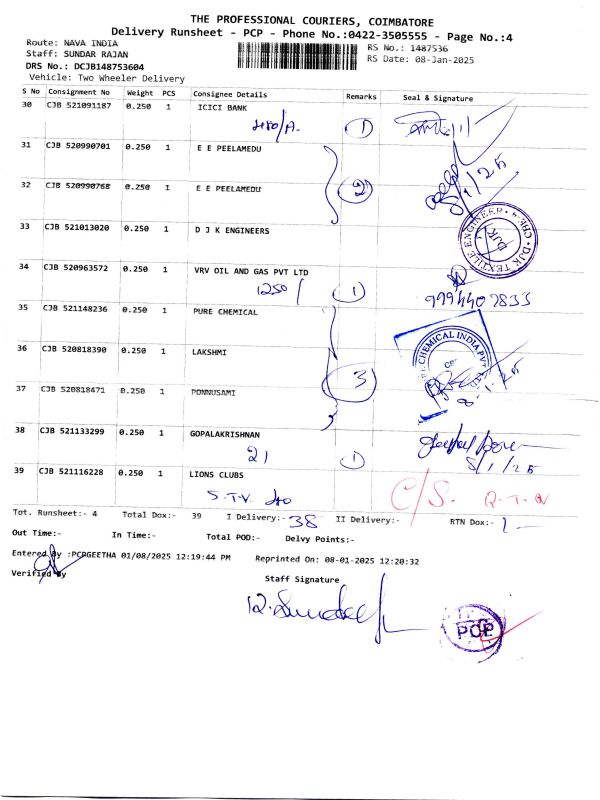 THE PROFESSIONAL COURIERS, COIMBATORE
Delivery Runsheet - PCP - Phone No.:0422-3505555 - Page No.:4
Route: NAVA INDIA
RS No.: 1487536
Staff: SUNDAR RAJAN
RS Date: 08-Jan-2025
DRS No.: DCJB148753604
Vehicle: Two Wheeler Delivery
S No Consignment No Weight PCS Consignee Details Remarks Seal & Signature
30 CJB 521091187 0.250 1 ICICI BANK
1
31 CJB 520990701 0.250 1 E E PEELAMEDU
32 CJB 520990768 0.250 1 E E PEELAMEDU
2
8/1/25
33 CJB 521013020 0.250 1 D J K ENGINEERS
DJK TEXTILE ENGINEER
DJK
34 CJB 520963572 0.250 1 VRV OIL AND GAS PVT LTD
1250/ 1
9994409833
35 CJB 521148236 0.250 1 PURE CHEMICAL
CHEMICAL INDIA PVT
36 CJB 520818390 0.250 1 LAKSHMI
3
37 CJB 520818471 0.250 1 PONNUSAMI
8-1-25
38 CJB 521133299 0.250 1 GOPALAKRISHNAN
21 1
8/1/25
39 CJB 521116228 0.250 1 LIONS CLUBS
C/S.
Tot. Runsheet:- 4 Total Dox:- 39 I Delivery:- 38 II Delivery:- RTN Dox:- 1
Out Time:- In Time:- Total POD:- Delvy Points:-
Entered By :PCPGEETHA 01/08/2025 12:19:44 PM Reprinted On: 08-01-2025 12:20:32
Verified By
Staff Signature
PCP